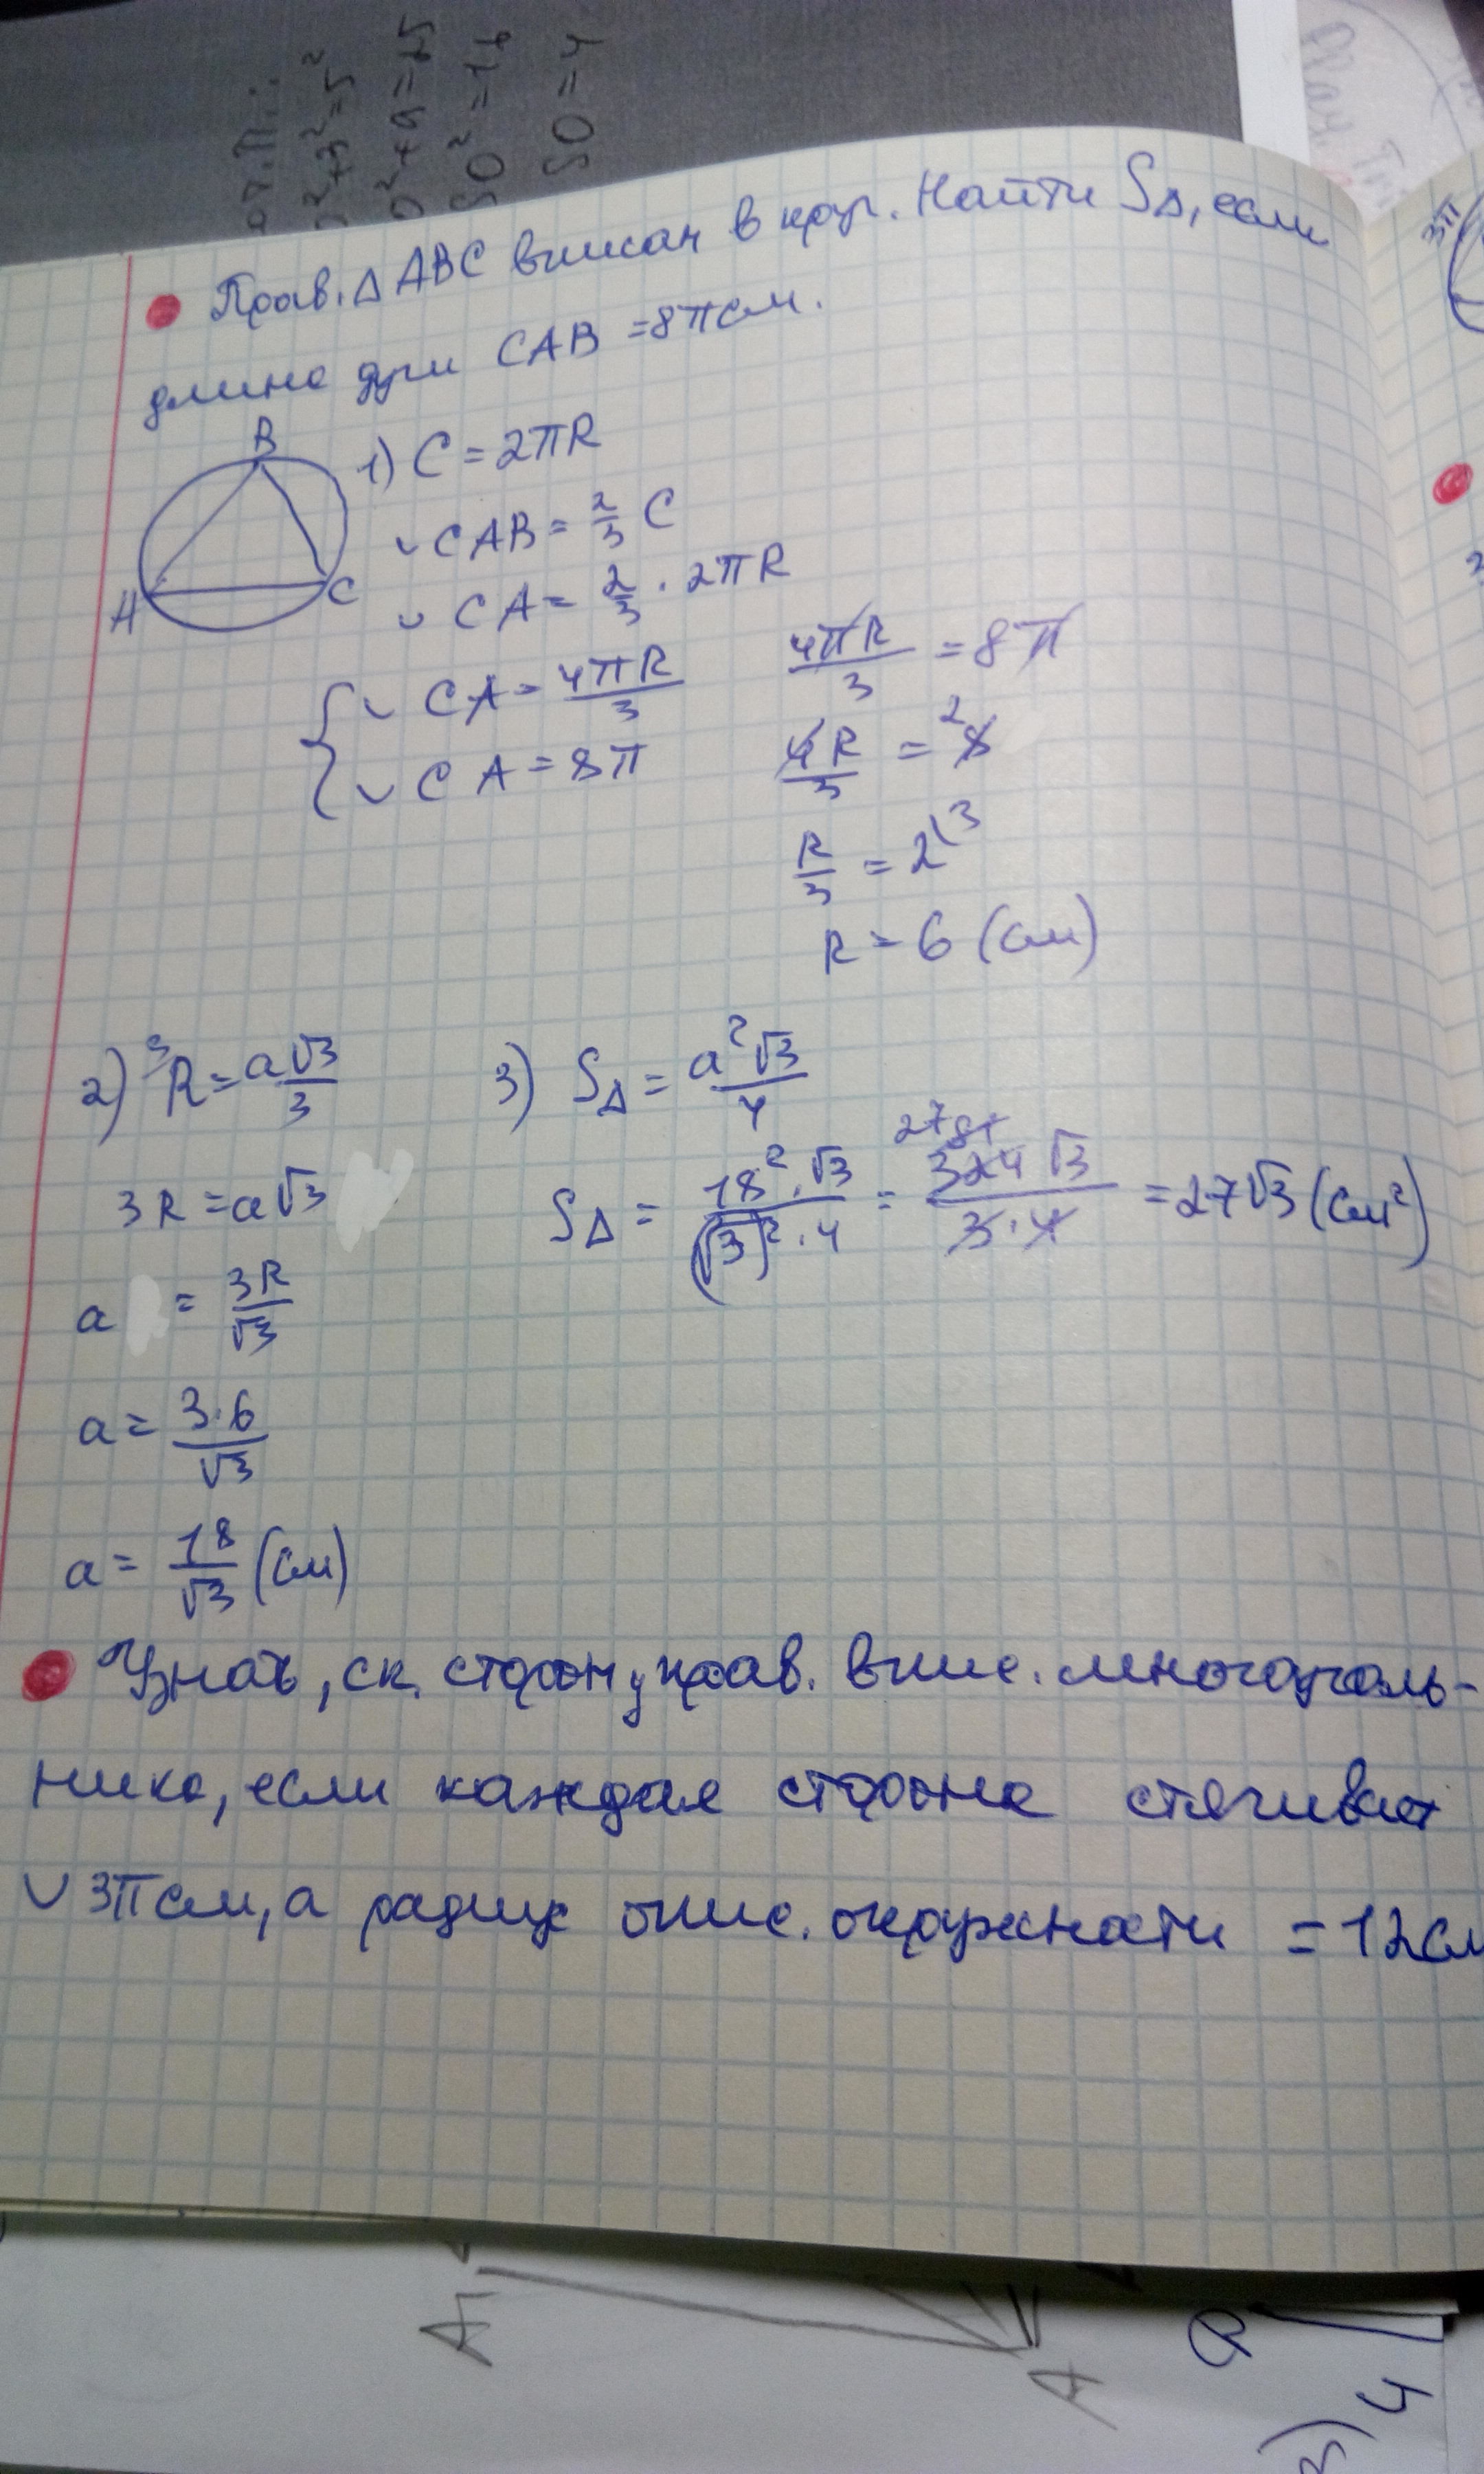 • Прав. Δ ABC вписан в круг. Найти SΔ, если
длина дуги CAB = 8π см.
B
A
C
1) C = 2πR
◡ CAB = 2/3 C
◡ CA = 2/3 · 2πR
{ ◡ CA = 4πR/3
◡ CA = 8π
4πR/3 = 8π
4R/3 = ²8
R/3 = 2\3
R = 6 (см)
2) ³R = a√3/3
3R = a√3
a = 3R/√3
a = 3·6/√3
a = 18/√3 (см)
3) SΔ = a²√3/4
SΔ = 18²·√3/(√3)²·4 = 27 81 324 √3/3·4 = 27√3 (см²)
• Узнать, ск. сторон у прав. впис. многоуголь-
ника, если каждая сторона стягивает
◡ 3π см, а радиус опис. окружности = 12 см
SO = 4
3π